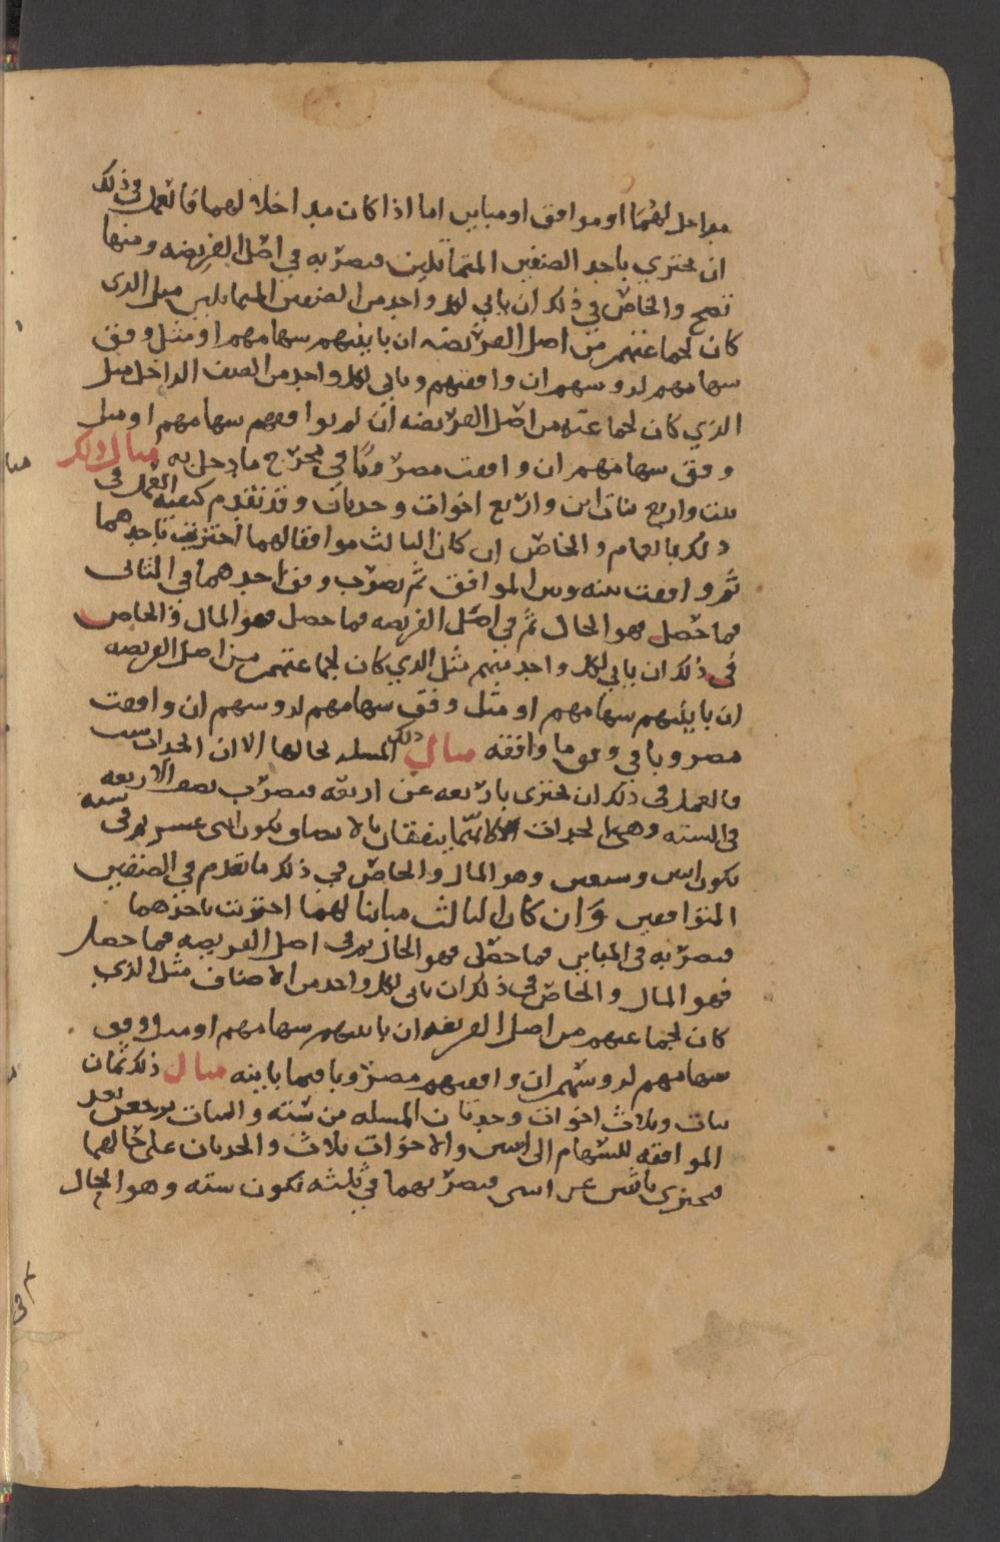 مداخل لهما او موافق او مباين اما اذا كان مداخلا لهما فالعمل في ذلك
ان تجتزي باحد الصنفين المتماثلين فتضربه في اصل الفريضه ومنها
تصح والخاص في ذلك ان ياتي لكل واحد من الصنفين المتماثلين مثل الذي
كان لجماعتهم من اصل الفريضه ان باينتهم سهامهم او مثل وفق
سهامهم لروسهم ان وافقتهم وياتي لكل واحد من الصنف الداخل مثل
الذي كان لجماعته من اصل الفريضه ان لم توافقهم سهامهم او مثل
وفق سهامهم ان وافقت مضروبًا في مخرج ما دخل به مثال ذلك
بنت واربع بنات ابن واربع اخوات وجدتان وقد تقدم كيفية العمل في
ذلك بالعام والخاص ان كان الثالث موافقا لهما اجتزيت باحدهما
ثم وافقت بينه وبين الموافق ثم تضرب وفق احدهما في الثاني
فما حصل فهو الحال ثم في اصل الفريضه فما حصل فهو المال والخاص
في ذلك ان ياتي لكل واحد منهم مثل الذي كان لجماعتهم من اصل الفريضه
ان باينتهم سهامهم او مثل وفق سهامهم لروسهم ان وافقت
مضروبا في وفق ما وافقه مثال ذلك المسله بحالها الا ان الجدات ست
فالعمل في ذلك ان تجتزي باربعه عن اربعه فتضرب نصف الاربعه
في السته وهي الجدات لانهما يتفقان بالانصاف يكون اثني عشر ثم في سته
يكون اثنين وسبعين وهو المال والخاص في ذلك ما تقدم في الصنفين
المتوافقين وان كان الثالث مباينا لهما اجتزيت باحدهما
فتضربه في المباين فما حصل فهو الحال ثم في اصل الفريضه فما حصل
فهو المال والخاص في ذلك ان ياتي لكل واحد من الاصناف مثل الذي
كان لجماعتهم من اصل الفريضه ان باينتهم سهامهم او مثل وفق
سهامهم لروسهم ان وافقتهم مضروبا فيما باينه مثال ذلك ثمان
بنات وثلاث اخوات وجدتان المسله من سته والبنات يرجعن بعد
الموافقه للسهام الى اثنين والاخوات ثلاث والجدتان على حالهما
فتجتزي باثنين عن اثنين فتضربهما في ثلثه تكون سته وهو الحال